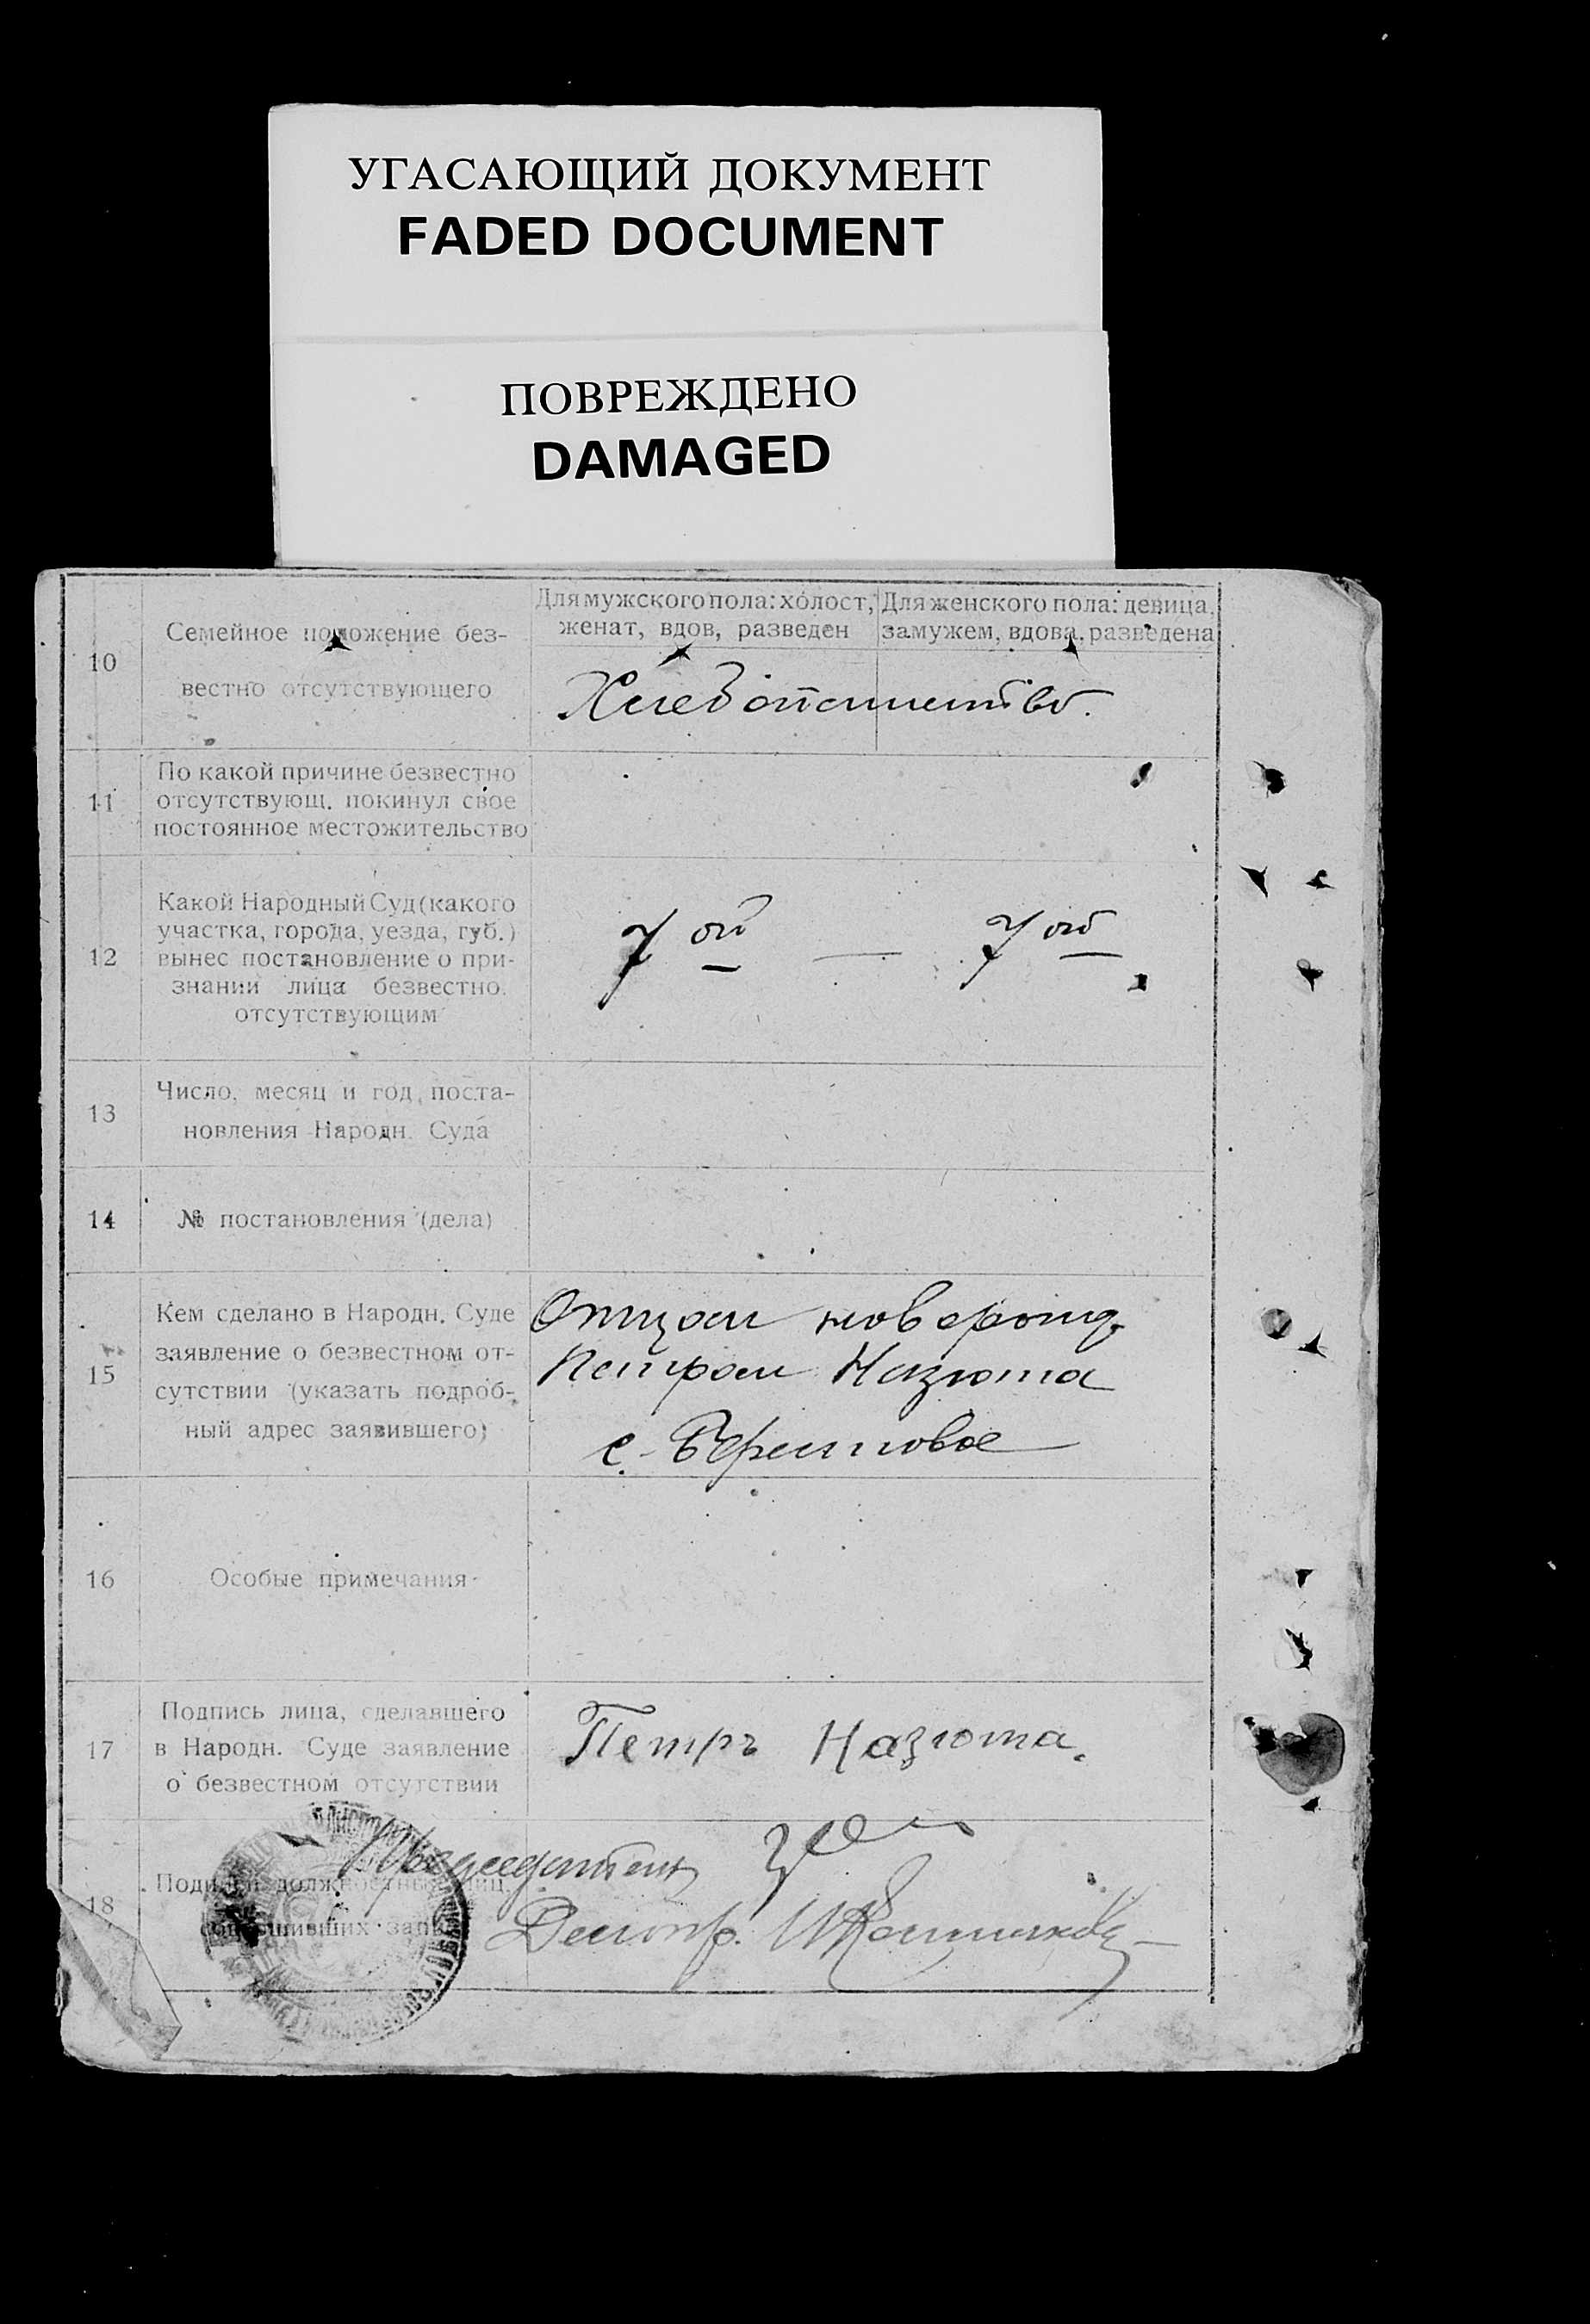 УГАСАЮЩИЙ ДОКУМЕНТ
FADED DOCUMENT
ПОВРЕЖДЕНО
DAMAGED
10
Семейное положение без-
вестно отсутствующего
Для мужского пола: холост,
женат, вдов, разведен
Для женского пола: девица,
замужем, вдова, разведена
Хлебопашество.
11
По какой причине безвестно
отсутствующ. покинул свое
постоянное местожительство
12
Какой Народный Суд (какого
участка, города, уезда, губ.)
вынес постановление о при-
знании лица безвестно
отсутствующим
7 ой — 7 ой
13
Число, месяц и год поста-
новления Народн. Суда
14
№ постановления (дела)
15
Кем сделано в Народн. Суде
заявление о безвестном от-
сутствии (указать подроб-
ный адрес заявившего)
Отцом новорожд.
Петром Назюта
с. Берестовое
16
Особые примечания
17
Подпись лица, сделавшего
в Народн. Суде заявление
о безвестном отсутствии
Петръ Назюта.
18
Подписи должностных лиц,
совершивших запись
Председатель
Делопр.